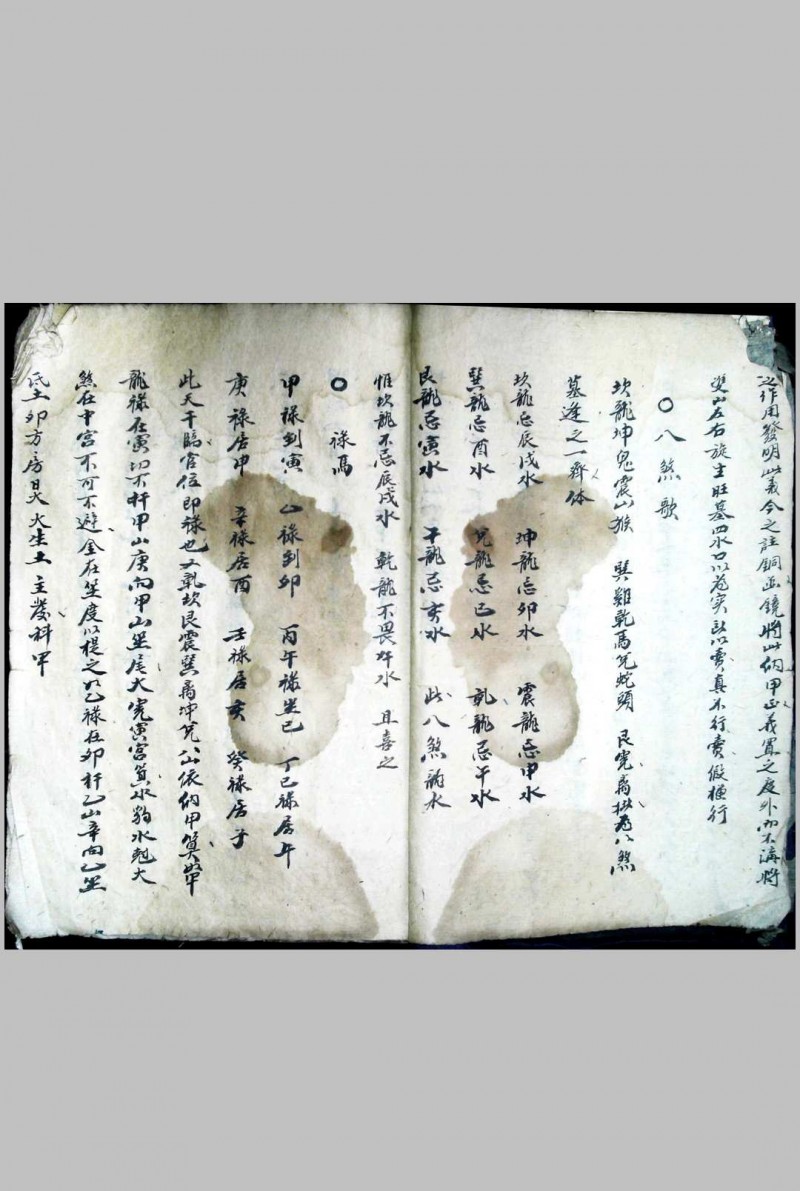 之作用發明此義今之註銅函鏡將此納甲正義置之度外而不講將
雙山左右旋生旺墓四水口以為实訣以賣真不行賣假便行
○八煞歌
坎龍坤兔震山猴 巽雞乾馬兌蛇頭 艮虎离猪為八煞
墓逢之一齊休
坎龍忌辰戌水 坤龍忌卯水 震龍忌申水
巽龍忌酉水 兌龍忌巳水 乹龍忌午水
艮龍忌寅水 龍忌亥水 此八煞 水
惟坎龍不忌辰戌水 乾龍不畏午水 且喜之
○ 禄馬
甲禄到寅 乙禄到卯 丙午禄坐巳 丁巳禄居午
庚禄居申 辛禄居酉 壬禄居亥 癸禄居子
此天干臨官位即禄也又乹坎艮震巽离坤兌八山依納甲算如甲
龍禄在寅切不扦甲山庚向甲山坐尾火虎寅宮箕水豹水尅火
煞在中宮不可不避金在坐度以提之如乙禄在卯扦乙山辛向乙坐
氐土卯方房日火生土 主發科甲